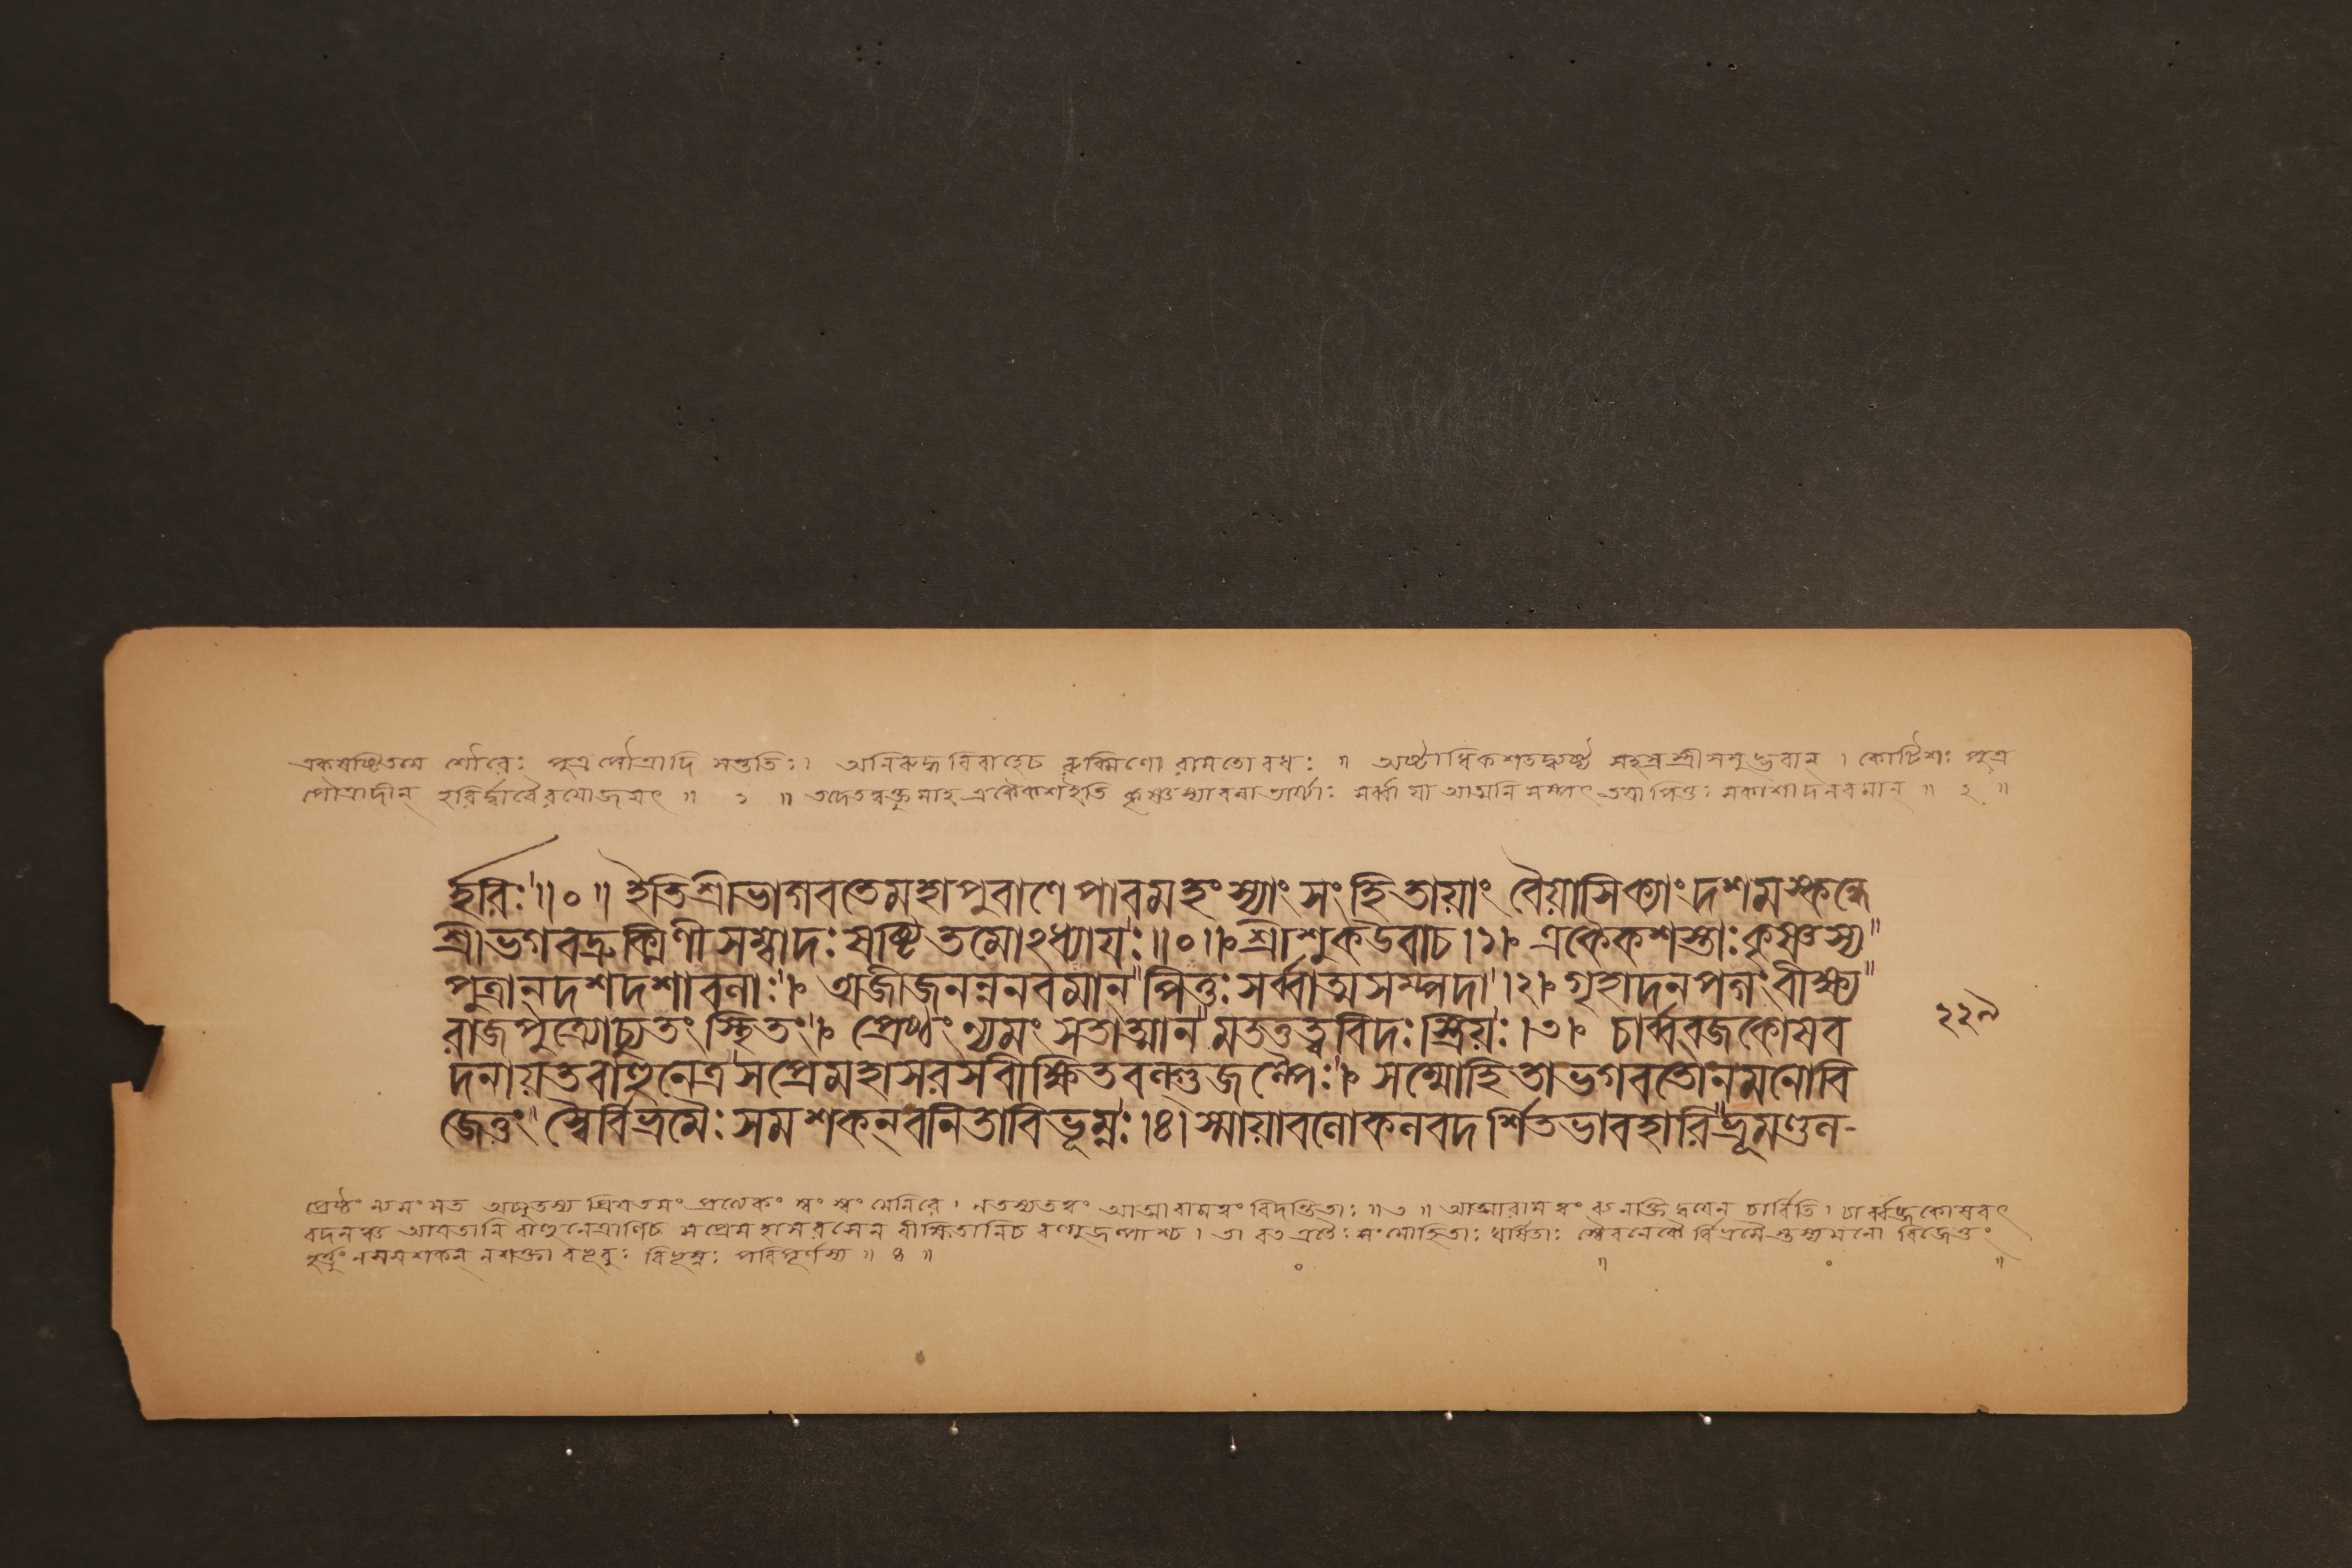 একষষ্টিতমে শৌরেঃ পুত্র পৌত্রাদি সন্ততিঃ। অনিরুদ্ধ বিবাহেচ রুক্মিণো রামতো বধঃ ॥ অষ্টাধিকশতদ্ব্যষ্ট সহস্র স্ত্রী সমুদ্ভবান্ । কোটিশঃ পুত্র
পৌত্রাদীন্ হরির্দ্দারৈরযোজয়ৎ ॥ ১ ॥ তদেতদ্বক্তুমাহ একৈকশইতি কৃষ্ণস্যাবলা ভার্য্যাঃ সর্ব্বা যা আত্মনি সম্পৎ তয়া পিতুঃ সকাশাদনবমান্ ॥ ২ ॥
র্হরিঃ ॥ ০ ॥ ইতিশ্রীভাগবতেমহাপুরাণেপারমহংস্যাং সংহিতায়াং বৈয়াসিক্যাংদশমস্কন্ধে
শ্রীভগবদ্রুক্মিণীসম্বাদঃষষ্টিতমোঽধ্যায়ঃ॥০॥ শ্রীশুকউবাচ।১। একৈকশস্তাঃকৃষ্ণস্য
পুত্রান্দশদশাবলাঃ। অজীজনন্ননবমান্পিতুঃসর্ব্বাত্মসম্পদা।২। গৃহাদনপগংবীক্ষ্য
রাজপুত্র্যোচ্যুতং স্থিতং। প্রেষ্ঠংন্যমংসতাত্মানমতত্তত্ত্ববিদঃস্ত্রিয়ঃ।৩। চার্ব্বব্জকোষব
দনায়তবাহুনেত্রসপ্রেমহাসরসবীক্ষিতবল্গুজল্পৈঃ। সম্মোহিতাভগবতোনমনোবি
জেতুং স্বৈর্বিভ্রমৈঃসমশকন্বনিতাবিভূম্নঃ।৪।স্মায়াবলোকলবদর্শিতভাবহারিভ্রূমণ্ডল-
২২৯
প্রেষ্ঠং ন্যমংসত অচ্যুতস্য প্রিয়তমং প্রত্যেকং স্বং স্বং মেনিরে। নতস্যতত্ত্বং আত্মারামত্বং বিদন্তিতাঃ ॥ ৩ ॥ আত্মারামত্বং ব্যনক্তি দ্বয়েন চার্বিতি। চার্ব্বব্জকোষবৎ
বদনঞ্চ আয়তানি বাহুনেত্রাণিচ সপ্রেমহাসরসেন বীক্ষিতানিচ বল্গুজল্পাশ্চ। তা বত এতৈঃ সংমোহিতাঃ স্বৈ র্বিভ্রমৈ স্তস্যমনো বিজেতুং
হর্ত্তুং নসমশকন্ নশক্তা বভূবুঃ বিভূম্নঃ পরিপূর্ণস্য ॥ ৪ ॥ ০ ॥ ০ ॥